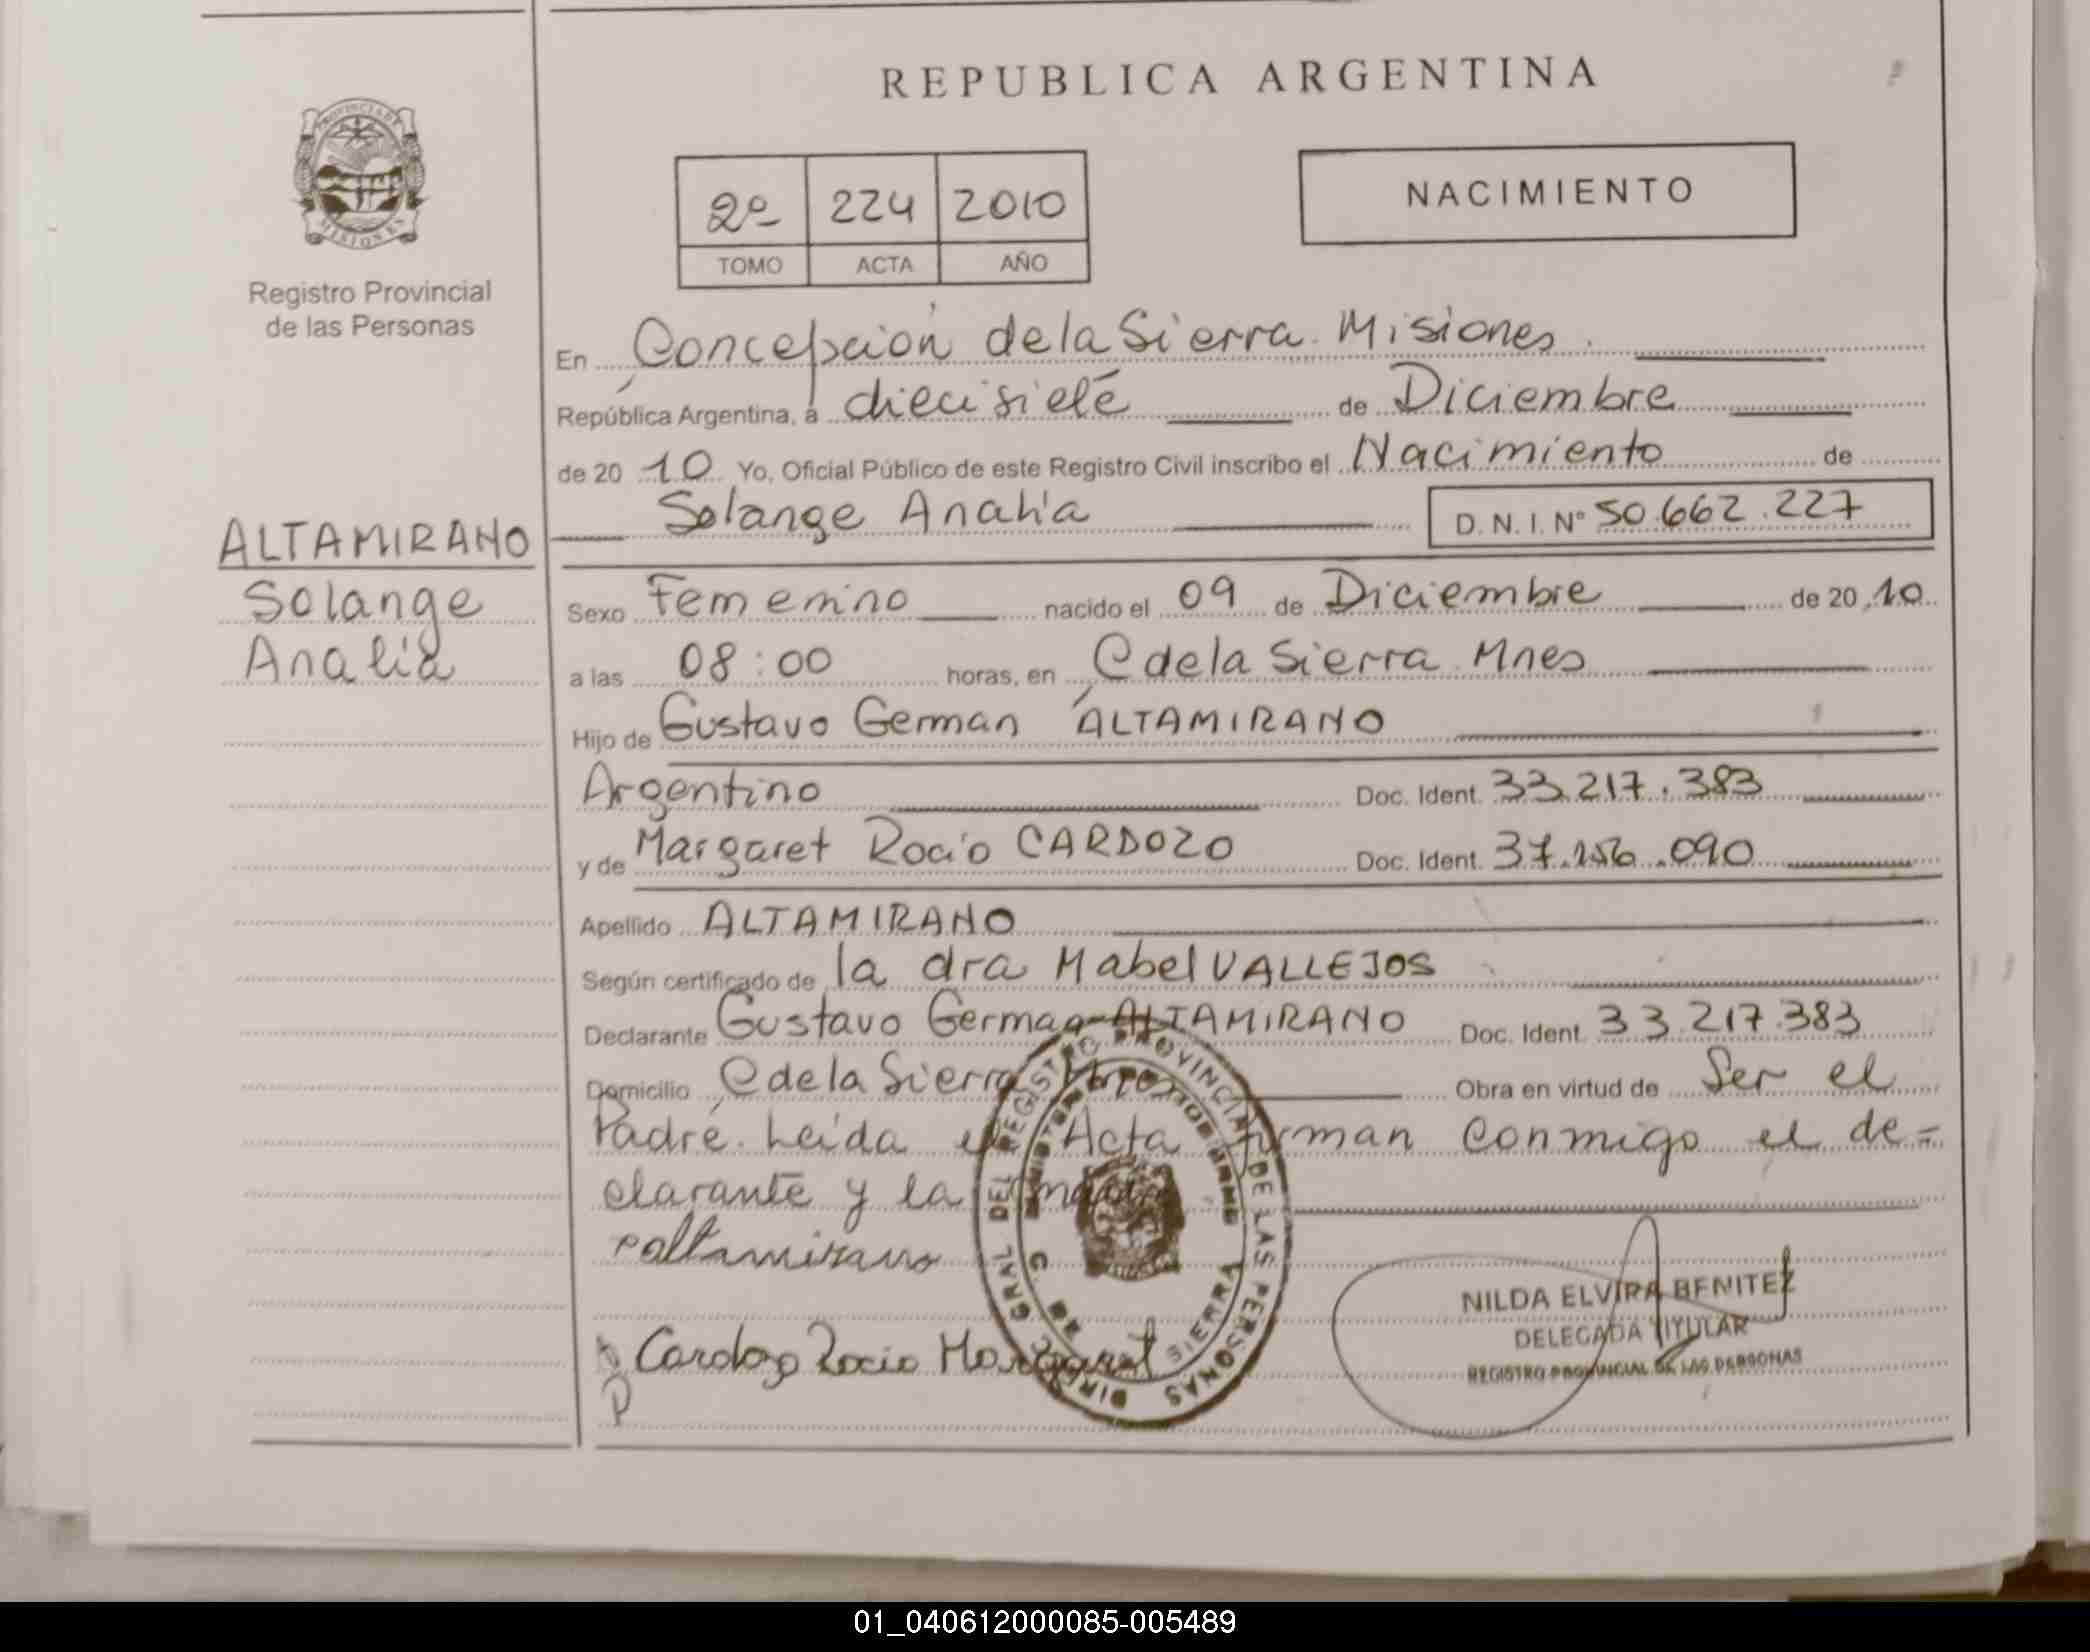 REPUBLICA ARGENTINA
PROVINCIA DE MISIONES
Registro Provincial
de las Personas
2º 224 2010
TOMO ACTA AÑO
NACIMIENTO
En Concepción de la Sierra. Misiones.
República Argentina, a diecisiete de Diciembre
de 20 10 Yo, Oficial Público de este Registro Civil inscribo el Nacimiento de
Solange Analía D.N.I. Nº 50.662.227
ALTAMIRANO
Solange
Analía
Sexo Femenino nacido el 09 de Diciembre de 20 10
a las 08:00 horas, en C de la Sierra. Mnes
Hijo de Gustavo German ALTAMIRANO
Argentino Doc. Ident. 33.217.383
y de Margaret Rocio CARDOZO Doc. Ident. 37.156.090
Apellido ALTAMIRANO
Según certificado de la dra Mabel VALLEJOS
Declarante Gustavo German ALTAMIRANO Doc. Ident. 33.217.383
Domicilio C de la Sierra Mnes Obra en virtud de Ser el
Padre. Leída el Acta firman conmigo el de-
clarante y la madre
altamirano
Cardozo Rocio Margaret
DIREC. GRAL DEL REGISTRO PROVINCIAL DE LAS PERSONAS
MINISTERIO DE GOBIERNO
C. DE SIERRA
NILDA ELVIRA BENITEZ
DELEGADA TITULAR
REGISTRO PROVINCIAL DE LAS PERSONAS
01_040612000085-005489